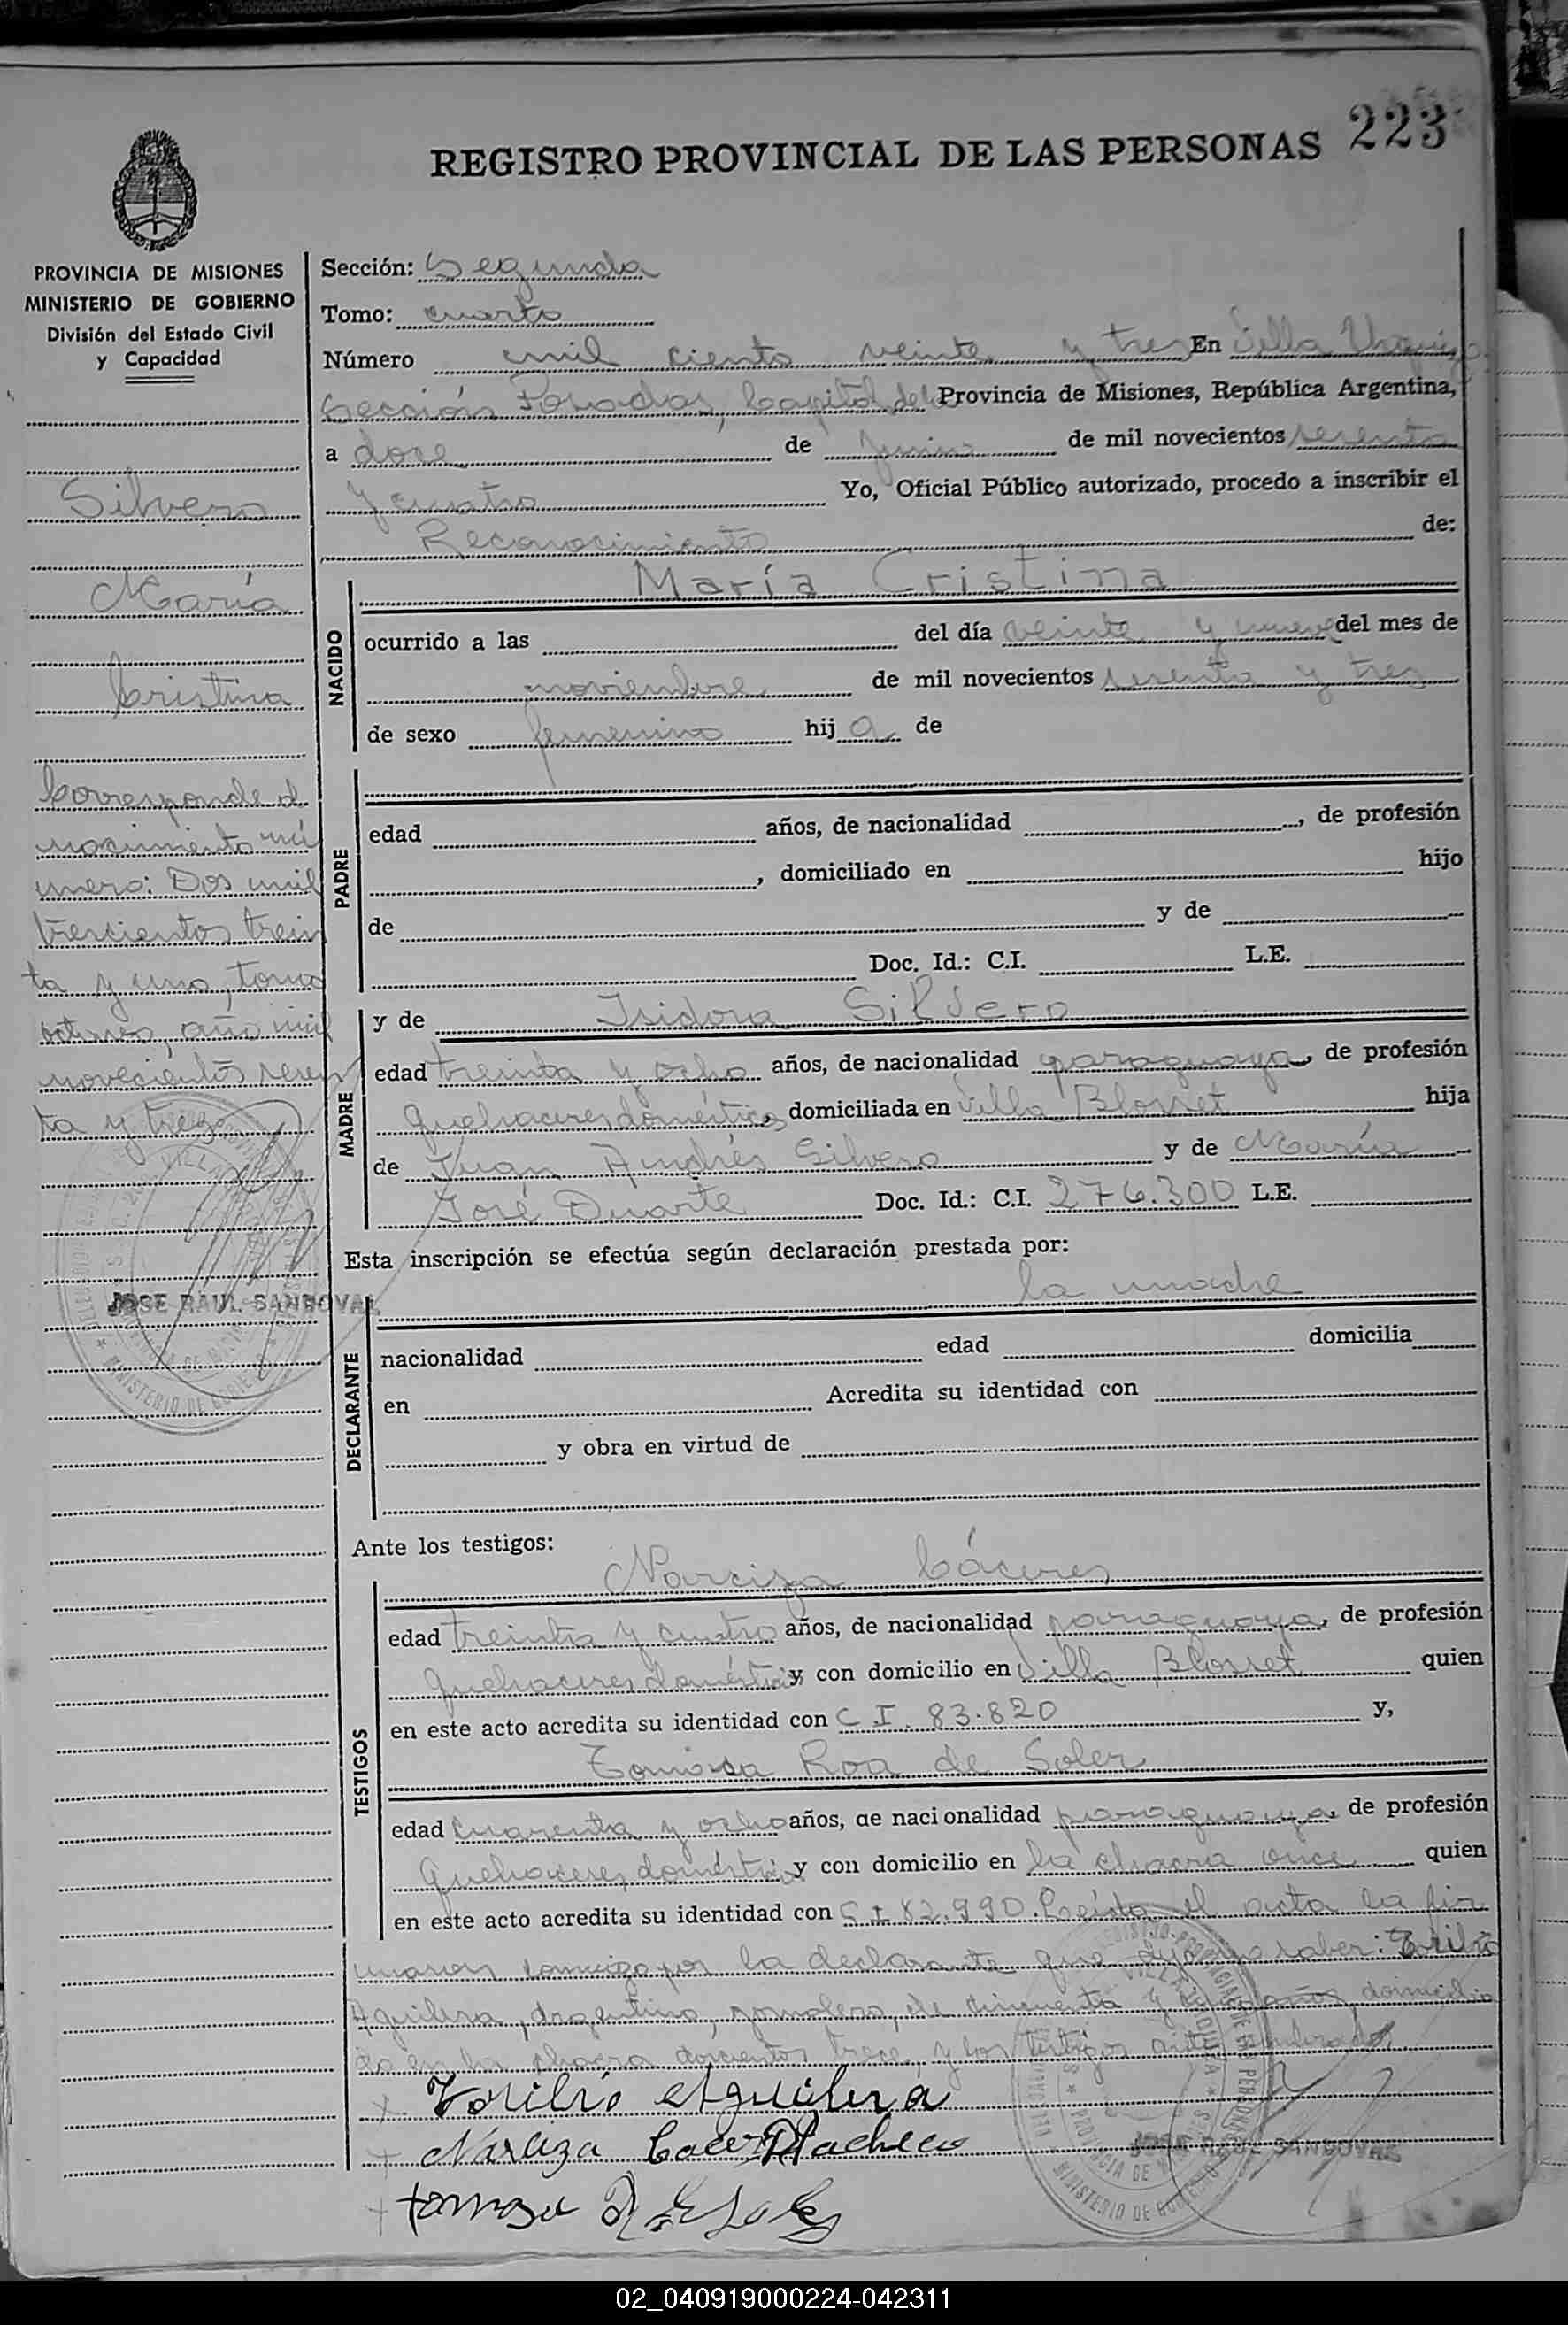 223
REGISTRO PROVINCIAL DE LAS PERSONAS
PROVINCIA DE MISIONES
MINISTERIO DE GOBIERNO
División del Estado Civil
y Capacidad
Silvero
María
Cristina
Corresponde al
nacimiento nú
mero: Dos mil
trescientos trein
ta y uno, tomo
octavo, año mil
novecientos sesen
ta y tres
JOSE RAUL SANDOVAL
Sección: Segunda
Tomo: cuarto
Número mil ciento veinte y tres En Villa Urquiza
Sección Posadas, Capital de la Provincia de Misiones, República Argentina,
a doce de junio de mil novecientos sesenta
y cuatro Yo, Oficial Público autorizado, procedo a inscribir el
Reconocimiento de:
María Cristina
NACIDO
ocurrido a las del día veinte y nueve del mes de
noviembre de mil novecientos sesenta y tres
de sexo femenino hija de
PADRE
edad años, de nacionalidad , de profesión
, domiciliado en hijo
de y de
Doc. Id.: C.I. L.E.
MADRE
y de Isidora Silvero
edad treinta y ocho años, de nacionalidad paraguaya, de profesión
Quehaceres domésticos domiciliada en Villa Blosset hija
de Juan Andrés Silvero y de María
José Duarte Doc. Id.: C.I. 276.300 L.E.
Esta inscripción se efectúa según declaración prestada por:
la madre
DECLARANTE
nacionalidad edad domicilia
en Acredita su identidad con
y obra en virtud de
Ante los testigos:
TESTIGOS
Narciza Cáceres
edad treinta y cuatro años, de nacionalidad paraguaya, de profesión
Quehaceres domésticos y con domicilio en Villa Blosset quien
en este acto acredita su identidad con C I. 83.820 y,
Tomasa Roa de Soler
edad cuarenta y ocho años, de nacionalidad paraguaya, de profesión
Quehaceres domésticos y con domicilio en la chacra once quien
en este acto acredita su identidad con C I 82.990. Leída el acta la fir
maron conmigo por la declarante que dijo no saber:
Aguilera, argentino, jornalero, de cincuenta y años, domicilia
do en la chacra doscientos trece, y los testigos ante nombrados
Aguilera
Narciza Pacheco
tomasa
JOSE RAUL SANDOVAL
02_040919000224-042311